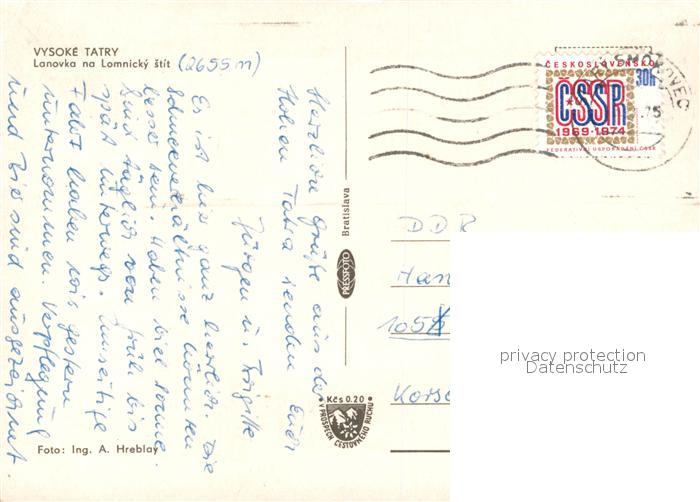 VYSOKÉ TATRY
Lanovka na Lomnický štít (2655 m)
Herzliche Grüße aus der
Hohen Tatra senden Euch
Jürgen u. Brigitte
Es ist hier ganz herrlich. Die
Schneeverhältnisse könnten
besser sein. Haben viel Sonne.
Sind täglich von früh bis
spät unterwegs. Eine
Fahrt haben wir gestern
unternommen. Verpflegung
und sind ausgezeichnet
Foto: Ing. A. Hreblay
PRESSFOTO Bratislava
Kčs 0.20
V PROSPECH CESTOVNÉHO RUCHU
ČESKOSLOVENSKO
30h
ČSSR
1969-1974
FEDERATIVNÍ USPOŘÁDÁNÍ ČSSR
75
DDR
Han
1055
Korso
privacy protection
Datenschutz